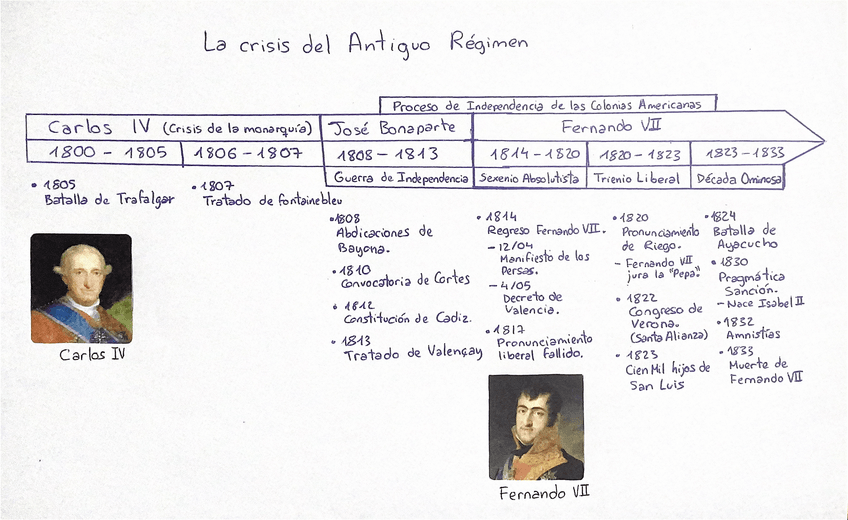 La crisis del Antiguo Régimen
Proceso de Independencia de las Colonias Americanas
Carlos IV (Crisis de la monarquía)
José Bonaparte
Fernando VII
1800 - 1805
1806 - 1807
1808 - 1813
1814 - 1820
1820 - 1823
1823 - 1833
Guerra de Independencia
Sexenio Absolutista
Trienio Liberal
Década Ominosa
• 1805
Batalla de Trafalgar
• 1807
Tratado de Fontainebleu
• 1808
Abdicaciones de
Bayona.
• 1810
Convocatoria de Cortes
• 1812
Constitución de Cadiz.
• 1813
Tratado de Valençay
• 1814
Regreso Fernando VII.
- 12/04
Manifiesto de los
Persas.
- 4/05
Decreto de
Valencia.
• 1817
Pronunciamiento
liberal fallido.
• 1820
Pronunciamiento
de Riego.
- Fernando VII
jura la "Pepa"
• 1822
Congreso de
Verona.
(Santa Alianza)
• 1823
Cien Mil hijos de
San Luis
• 1824
Batalla de
Ayacucho
• 1830
Pragmática
Sanción.
- Nace Isabel II
• 1832
Amnistías
• 1833
Muerte de
Fernando VII
Carlos IV
Fernando VII